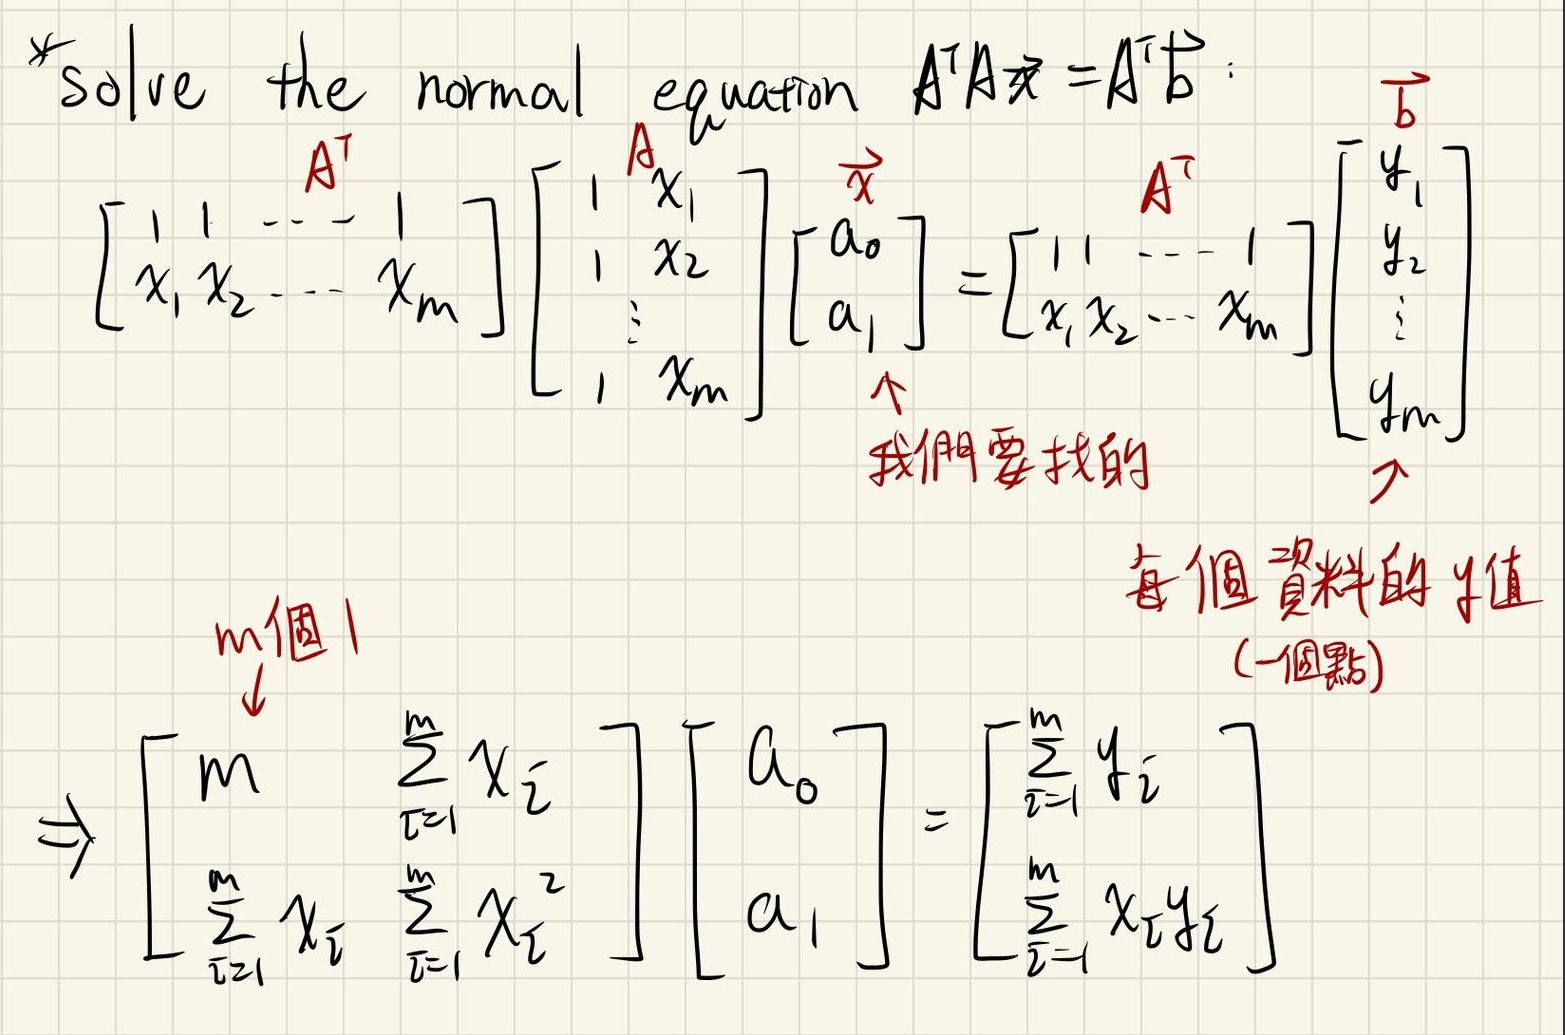 *solve the normal equation AᵀAx⃗ = Aᵀb⃗ :
Aᵀ A x⃗ Aᵀ b⃗
[1 1 ---- 1; x₁ x₂ ---- xₘ] [1 x₁; 1 x₂; ⋮; 1 xₘ] [a₀; a₁] = [1 1 ---- 1; x₁ x₂ --- xₘ] [y₁; y₂; ⋮; yₘ]
↑
我們要找的
↗
每個資料的y值
(一個點)
m個1
↓
⇒ [m ∑ᵢ₌₁ᵐ xᵢ; ∑ᵢ₌₁ᵐ xᵢ ∑ᵢ₌₁ᵐ xᵢ²] [a₀; a₁] = [∑ᵢ₌₁ᵐ yᵢ; ∑ᵢ₌₁ᵐ xᵢyᵢ]